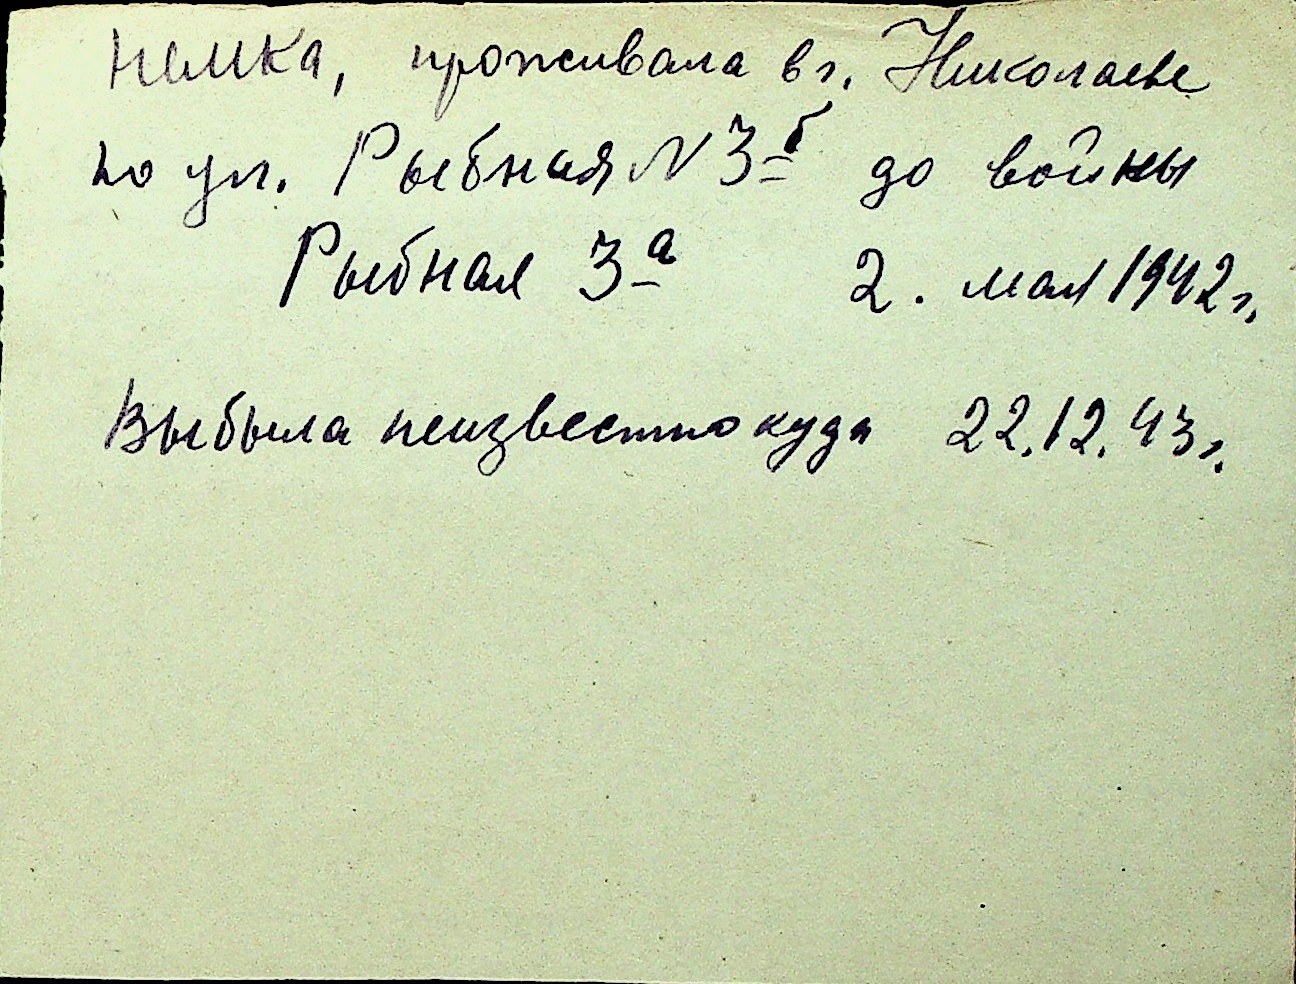 немка, проживала в г. Николаеве
по ул. Рыбная N 3б до войны
Рыбная 3а 2. мая 1942 г.
Выбыла неизвестно куда 22.12.43 г.